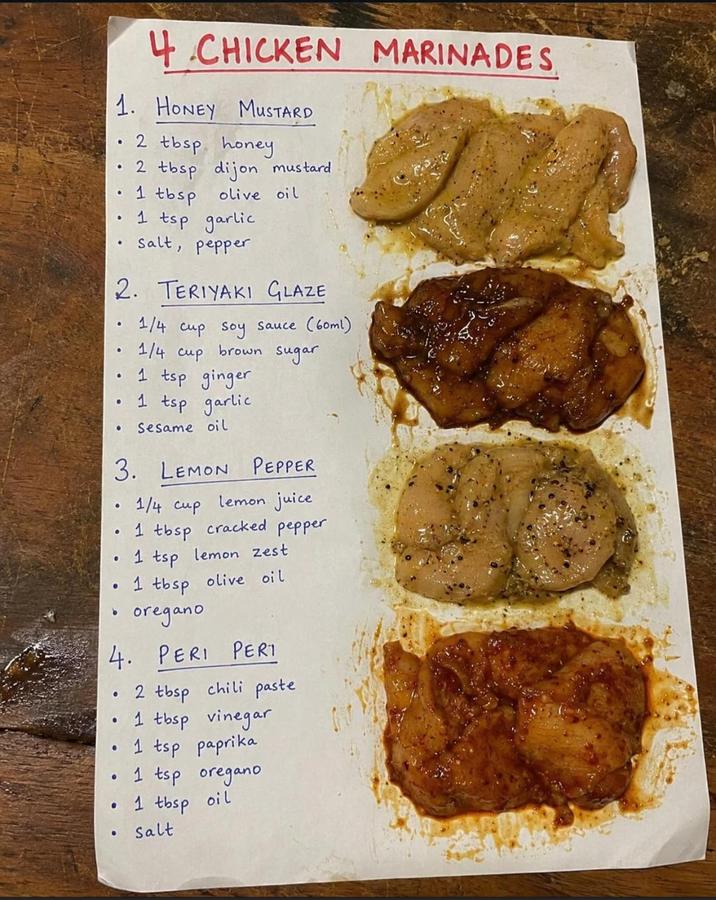 4 CHICKEN MARINADES
1. HONEY MUSTARD
• 2 tbsp honey
• 2 tbsp dijon mustard
• 1 tbsp olive oil
• 1 tsp garlic
• salt, pepper
2. TERIYAKI GLAZE
• 1/4 cup soy sauce (60ml)
• 1/4 cup brown sugar
• 1 tsp ginger
• 1 tsp garlic
• sesame oil
3. LEMON PEPPER
• 1/4 cup lemon juice
• 1 tbsp cracked pepper
• 1 tsp lemon zest
• 1 tbsp olive oil
• oregano
4. PERI PERI
• 2 tbsp chili paste
• 1 tbsp vinegar
• 1 tsp paprika
• 1 tsp oregano
• 1 tbsp oil
• salt